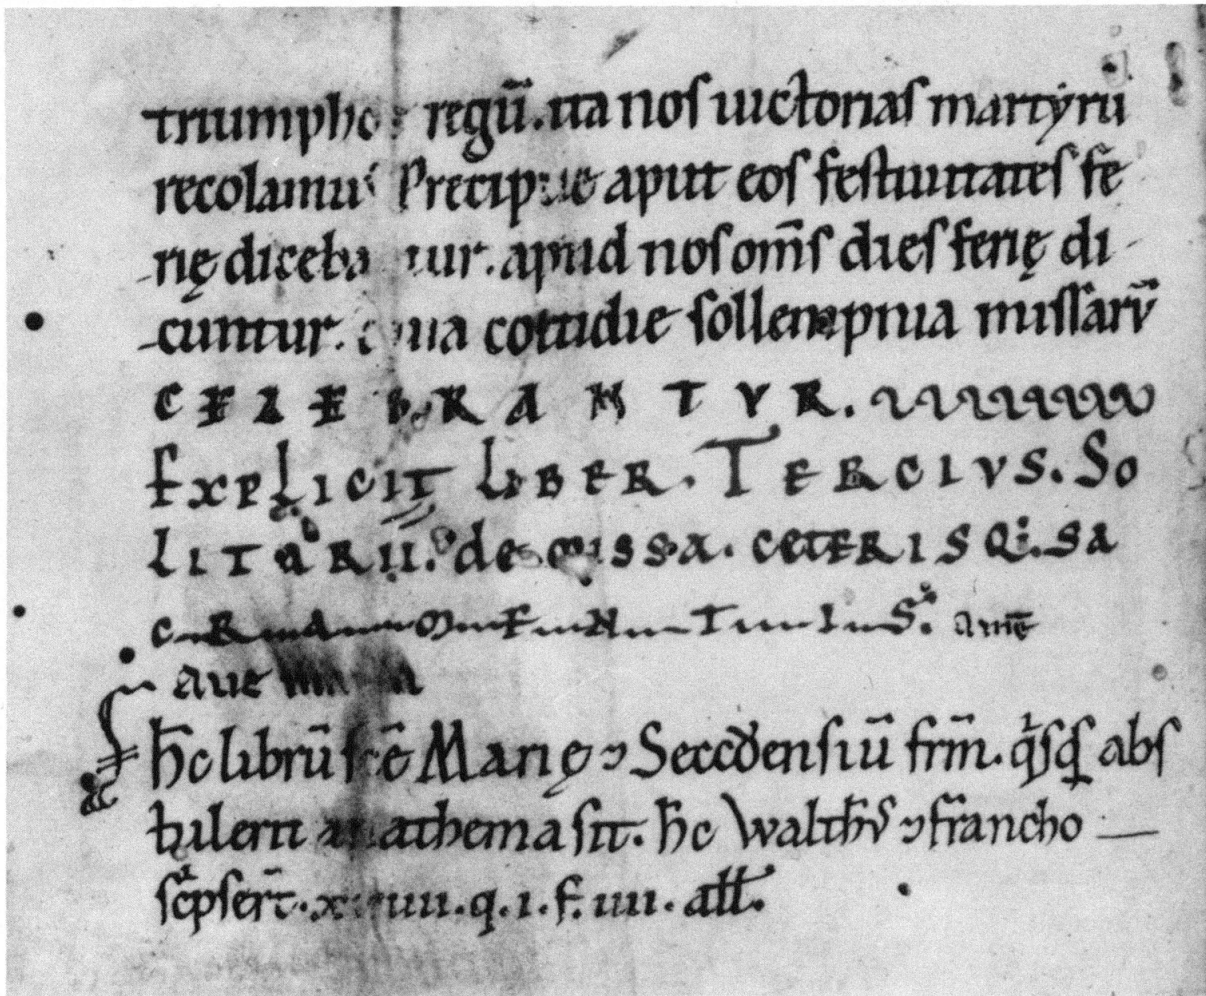 triumphos regū. ita nos uictorias martyrū
recolamus Precipue aput eos festiuitates fe
rię diceba tur. apud nos om̄s dies ferię di-
cuntur. quia cottidie sollempnia missarū
CELEBRANTVR.
EXPLICIT LIBER. TERCIVS. So
LITARII. de missa. ceterisq; sa
CRAMENTIS. amē
aue maria
h̄c librū sc̄e Marię ⁊ Seccouensiū frm̄. q̇sq̇ abs
tulerit anathema sit. h̄c Walth̄s ⁊ francho
sc̓pser̄t. q. i. f. iiii. aƚƚ.